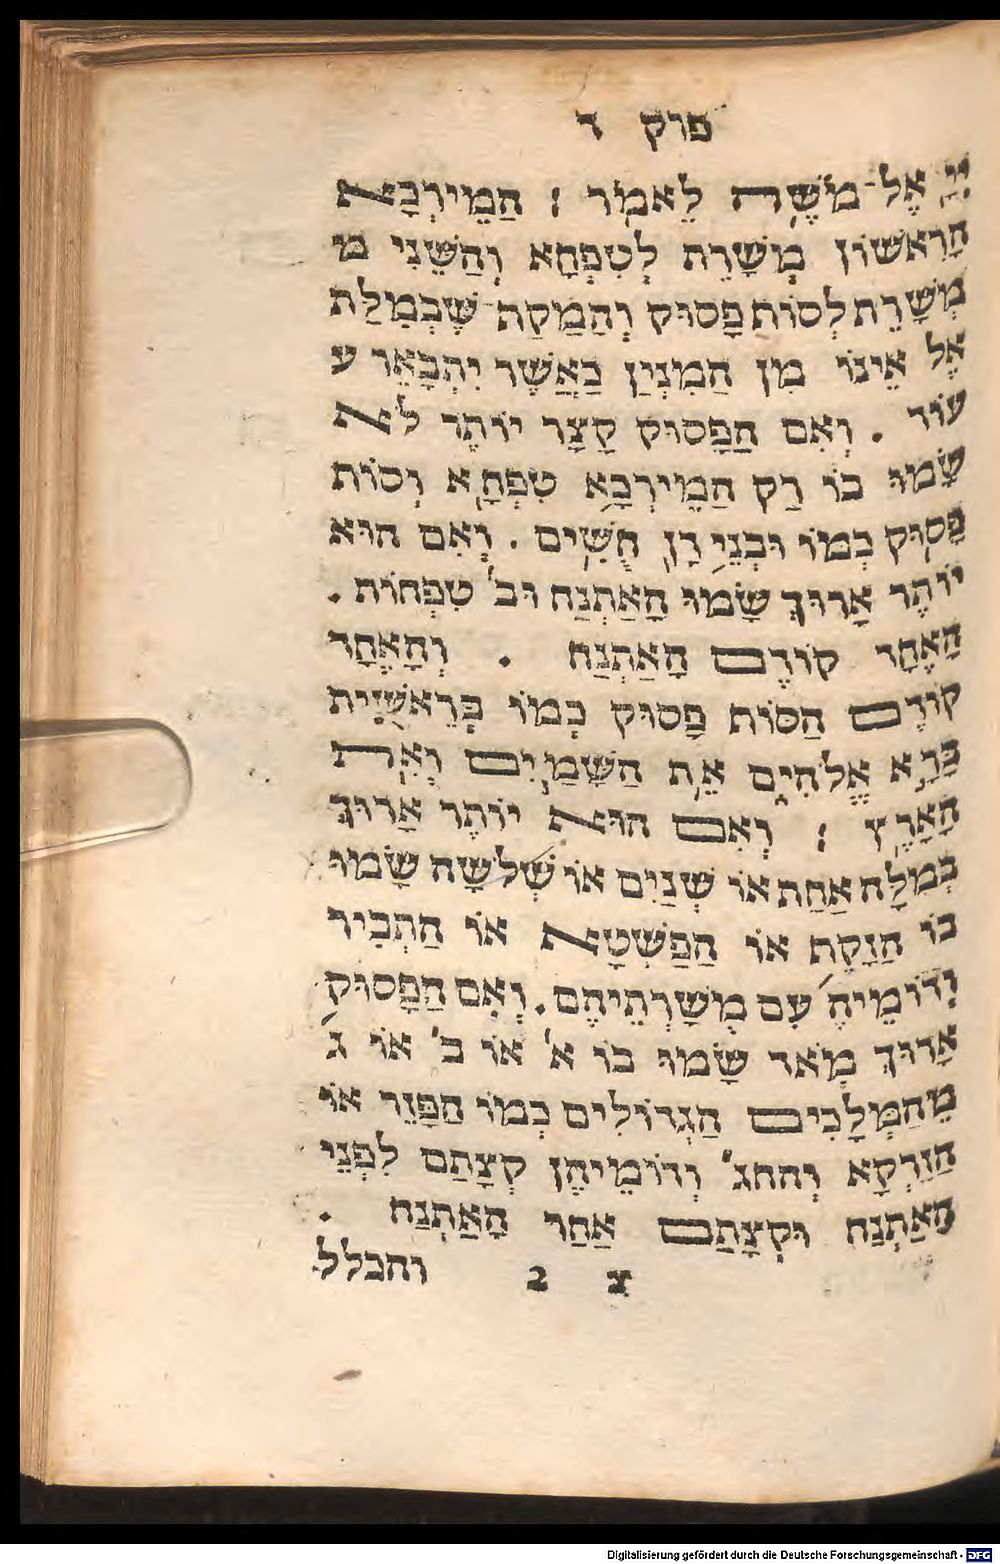 פרק ד
יְיָ אֶל־מֹשֶׁה לֵאמֹר : הַמֵירְכָא
הָרִאשׁוֹן מְשָׁרֵת לְטִפְחָא וְהַשֵּׁנִי מ
מְשָׁרֵת לְסוֹף פָּסוּק וְהַמַקַף שֶׁבְּמִלַת
אֶל אֵינוֹ מִן הַמִנְיַן כַּאֲשֶׁר יִתְבָּאֵר ע
עוֹד . וְאִם הַפָּסוּק קָצָר יוֹתֵר לֹא
שָׂמוּ בוֹ רַק הַמֵירְכָא טִפְחָא וְסוֹף
פָּסוּק כְּמוֹ וּבְנֵי דָן חֻשִׁים . וְאִם הוּא
יוֹתֵר אָרוּךְ שָׂמוּ הָאַתְנַח וּב' טִפְחוֹת .
הָאֶחָד קוֹדֶם הָאַתְנַח . וְהָאֶחָד
קוֹדֶם הַסוֹף פָּסוּק כְּמוֹ בְּרֵאשִׁית
בָּרָא אֱלֹהִים אֵת הַשָּׁמַיִם וְאֵת
הָאָרֶץ : וְאִם הוּא יוֹתֵר אָרוּךְ
בְּמִלָה אַחַת אוֹ שְׁנַיִם אוֹ שְׁלֹשָׁה שָׂמוּ
בוֹ הַזָקֵף אוֹ הַפַּשְׁטָא אוֹ הַתְבִיר
וְדוֹמֵיהֶ' עִם מְשָׁרְתֵיהֶם . וְאִם הַפָּסוּק
אָרוּךְ מְאֹד שָׂמוּ בוֹ א' אוֹ ב' אוֹ ג'
מֵהַמְּלָכִים הַגְּדוֹלִים כְּמוֹ הַפָּזֵר אוֹ
הַזַרְקָא וְהתג' וְדוֹמֵיהֶן קְצָתַם לִפְנֵי
הָאַתְנַח וּקְצָתַם אַחַר הָאַתְנַח .
צ ב והכלל
Digitalisierung gefördert durch die Deutsche Forschungsgemeinschaft - DFG